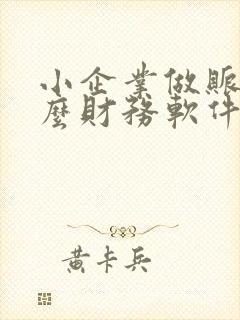 小企業做賬
麼財務軟件
黃卡兵